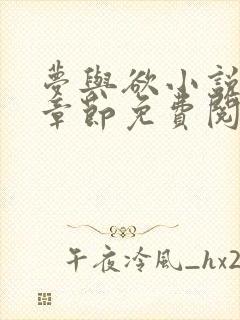 夢與欲小說
章節免費閱
午夜冷風_hx2